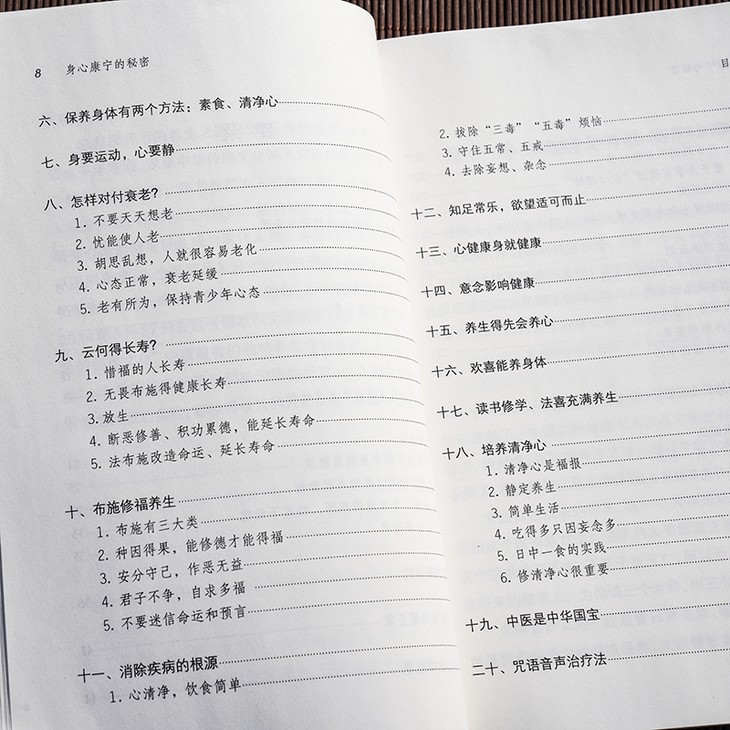 8 身心康宁的秘密
六、保养身体有两个方法：素食、清净心
七、身要运动，心要静
八、怎样对付衰老？
1. 不要天天想老
2. 忧能使人老
3. 胡思乱想，人就很容易老化
4. 心态正常，衰老延缓
5. 老有所为，保持青少年心态
九、云何得长寿？
1. 惜福的人长寿
2. 无畏布施得健康长寿
3. 放生
4. 断恶修善、积功累德，能延长寿命
5. 法布施改造命运、延长寿命
十、布施修福养生
1. 布施有三大类
2. 种因得果，能修德才能得福
3. 安分守己，作恶无益
4. 君子不争，自求多福
5. 不要迷信命运和预言
十一、消除疾病的根源
1. 心清净，饮食简单
目
2. 拔除“三毒”“五毒”烦恼
3. 守住五常、五戒
4. 去除妄想、杂念
十二、知足常乐，欲望适可而止
十三、心健康身就健康
十四、意念影响健康
十五、养生得先会养心
十六、欢喜能养身体
十七、读书修学、法喜充满养生
十八、培养清净心
1. 清净心是福报
2. 静定养生
3. 简单生活
4. 吃得多只因妄念多
5. 日中一食的实践
6. 修清净心很重要
十九、中医是中华国宝
二十、咒语音声治疗法